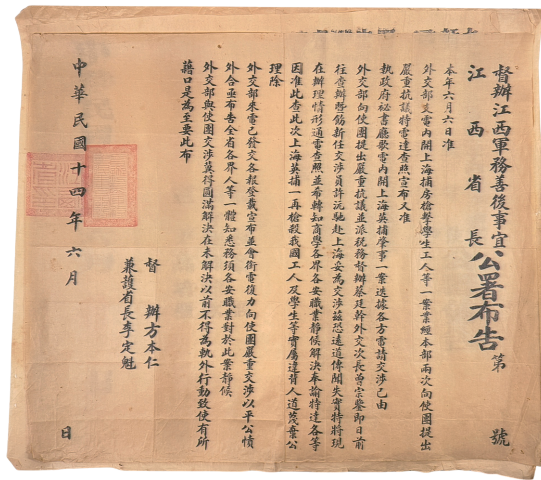 督辦江西軍務善後事宜
江西省長
公署布告 第 號
本年六月六日准
外交部支電內開上海捕房槍擊學生工人等一案業經本部兩次向使團提出
嚴重抗議特電達查照宣布又准
執政府祕書廳歌電內開上海英捕肇事一案迭據各方電請交涉已由
外交部向使團提出嚴重抗議並派稅務督辦蔡廷幹外交次長曾宗鑒即日前
往查辦暨飭新任交涉員許沅馳赴上海妥為交涉茲恐遠道傳聞失實特將現
在辦理情形通電查照並希轉知商學各界各安職業靜候解決奉諭特達各等
因准此查此次上海英捕一再槍殺我國工人及學生等實屬違背人道蔑棄公
理除
外交部來電已發交各報登載宣布並會銜電復力向使團嚴重交涉以平公憤
外合亟布告全省各界人等一體知悉務須各安職業對於此案靜候
外交部與使團交涉冀得圓滿解決在未解決以前不得為軌外行動致使有所
藉口是為至要此布
督辦方本仁
兼護省長李定魁
中華民國十四年六月 日